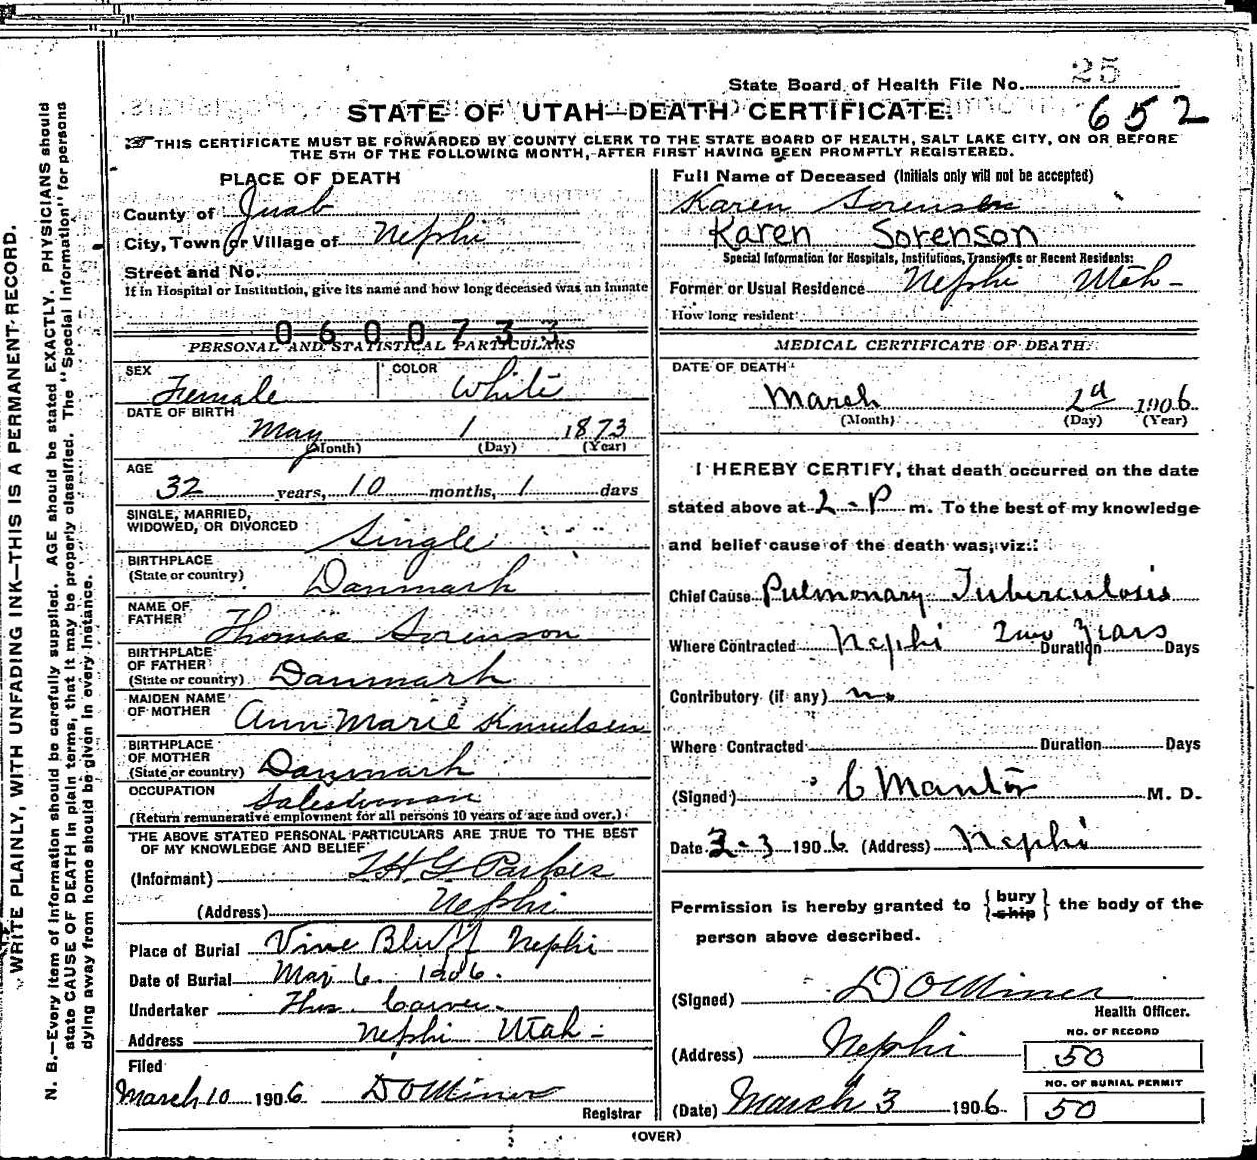 25
State Board of Health File No.
652
STATE OF UTAH—DEATH CERTIFICATE.
THIS CERTIFICATE MUST BE FORWARDED BY COUNTY CLERK TO THE STATE BOARD OF HEALTH, SALT LAKE CITY, ON OR BEFORE
THE 5TH OF THE FOLLOWING MONTH, AFTER FIRST HAVING BEEN PROMPTLY REGISTERED.
WRITE PLAINLY, WITH UNFADING INK—THIS IS A PERMANENT RECORD.
N. B.—Every item of information should be carefully supplied. AGE should be stated EXACTLY. PHYSICIANS should
state CAUSE OF DEATH in plain terms, that it may be properly classified. The "Special Information" for persons
dying away from home should be given in every instance.
PLACE OF DEATH
County of Juab
City, Town or Village of Nephi
Street and No.
If in Hospital or Institution, give its name and how long deceased was an inmate
0600733
PERSONAL AND STATISTICAL PARTICULARS
SEX COLOR
Female White
DATE OF BIRTH
May 1 1873
(Month) (Day) (Year)
AGE
32 years, 10 months, 1 days
SINGLE, MARRIED,
WIDOWED, OR DIVORCED
Single
BIRTHPLACE
(State or country) Danmark
NAME OF
FATHER Thomas Sorenson
BIRTHPLACE
OF FATHER
(State or country) Danmark
MAIDEN NAME
OF MOTHER Ann Marie Knudsen
BIRTHPLACE
OF MOTHER
(State or country) Danmark
OCCUPATION Saleswoman
(Return remunerative employment for all persons 10 years of age and over.)
THE ABOVE STATED PERSONAL PARTICULARS ARE TRUE TO THE BEST
OF MY KNOWLEDGE AND BELIEF
(Informant) T H G Parkes
(Address) Nephi
Place of Burial Vine Bluff Nephi
Date of Burial Mar 6 1906.
Undertaker Thos. Carver
Address Nephi Utah
Filed
March 10 1906 D O Miner
Registrar
Full Name of Deceased (Initials only will not be accepted)
Karen Sorensen
Karen Sorenson
Special Information for Hospitals, Institutions, Transients or Recent Residents:
Former or Usual Residence Nephi Utah
How long resident
MEDICAL CERTIFICATE OF DEATH
DATE OF DEATH
March 2d 1906
(Month) (Day) (Year)
I HEREBY CERTIFY, that death occurred on the date
stated above at 2-P m. To the best of my knowledge
and belief cause of the death was, viz:
Chief Cause Pulmonary Tuberculosis
Where Contracted Nephi Duration Two Years Days
Contributory (if any) no
Where Contracted Duration Days
(Signed) C Mantor M. D.
Date 3-3 1906 (Address) Nephi
Permission is hereby granted to { bury ship } the body of the
person above described.
(Signed) D O Miner
Health Officer.
(Address) Nephi
NO. OF RECORD
50
(Date) March 3 1906
NO. OF BURIAL PERMIT
50
(OVER)